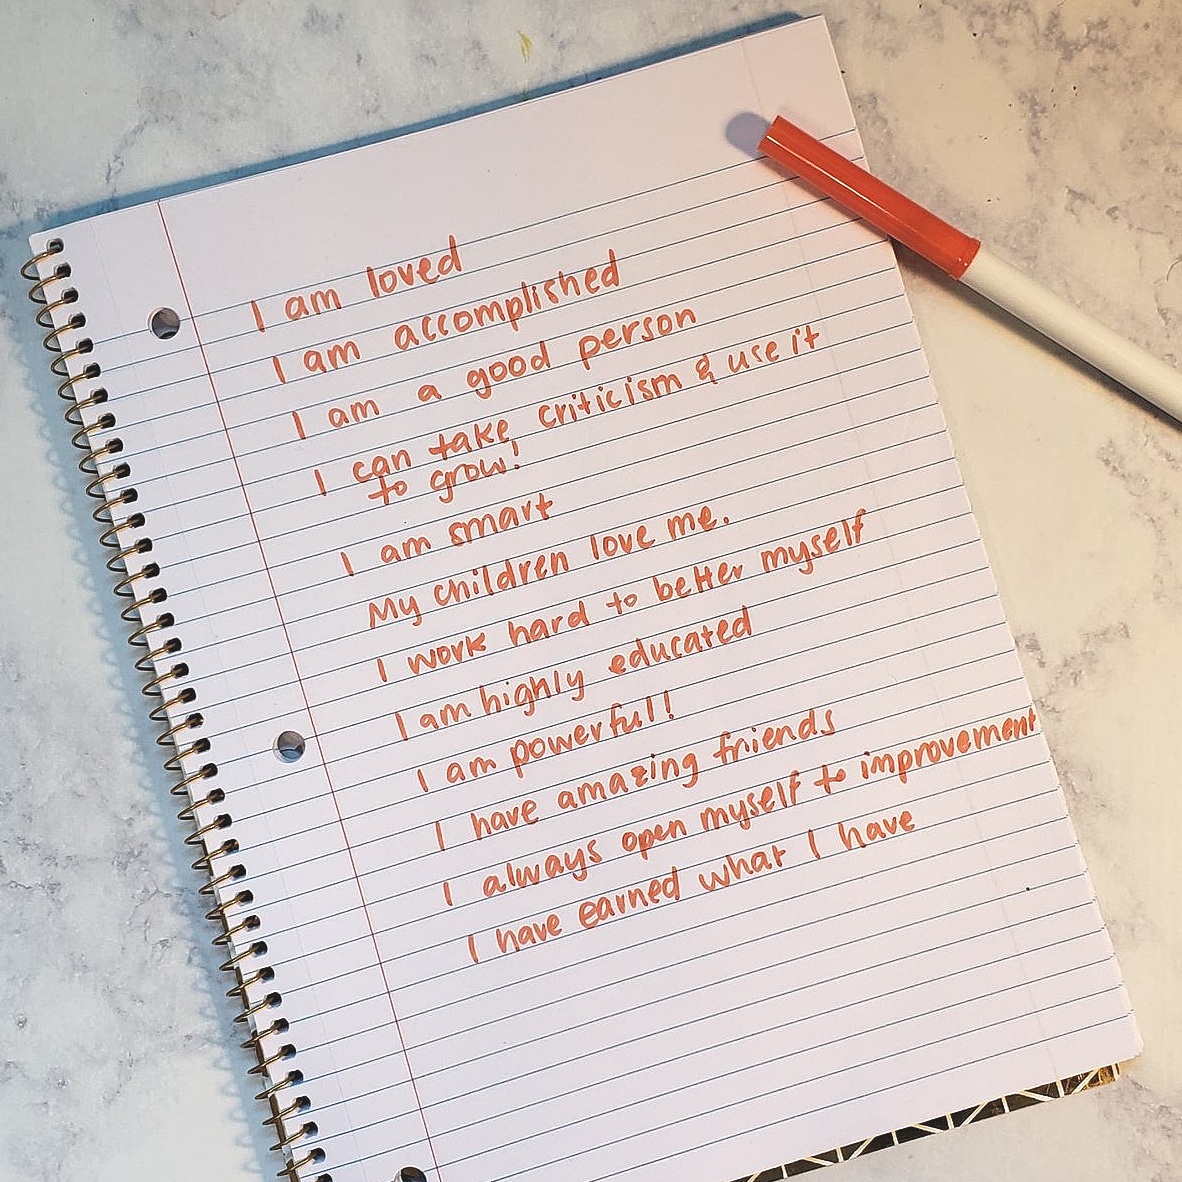 I am loved
I am accomplished
I am a good person
I can take criticism & use it
to grow!
I am smart
My children love me.
I work hard to better myself
I am highly educated
I am powerful!
I have amazing friends
I always open myself to improvement
I have earned what I have